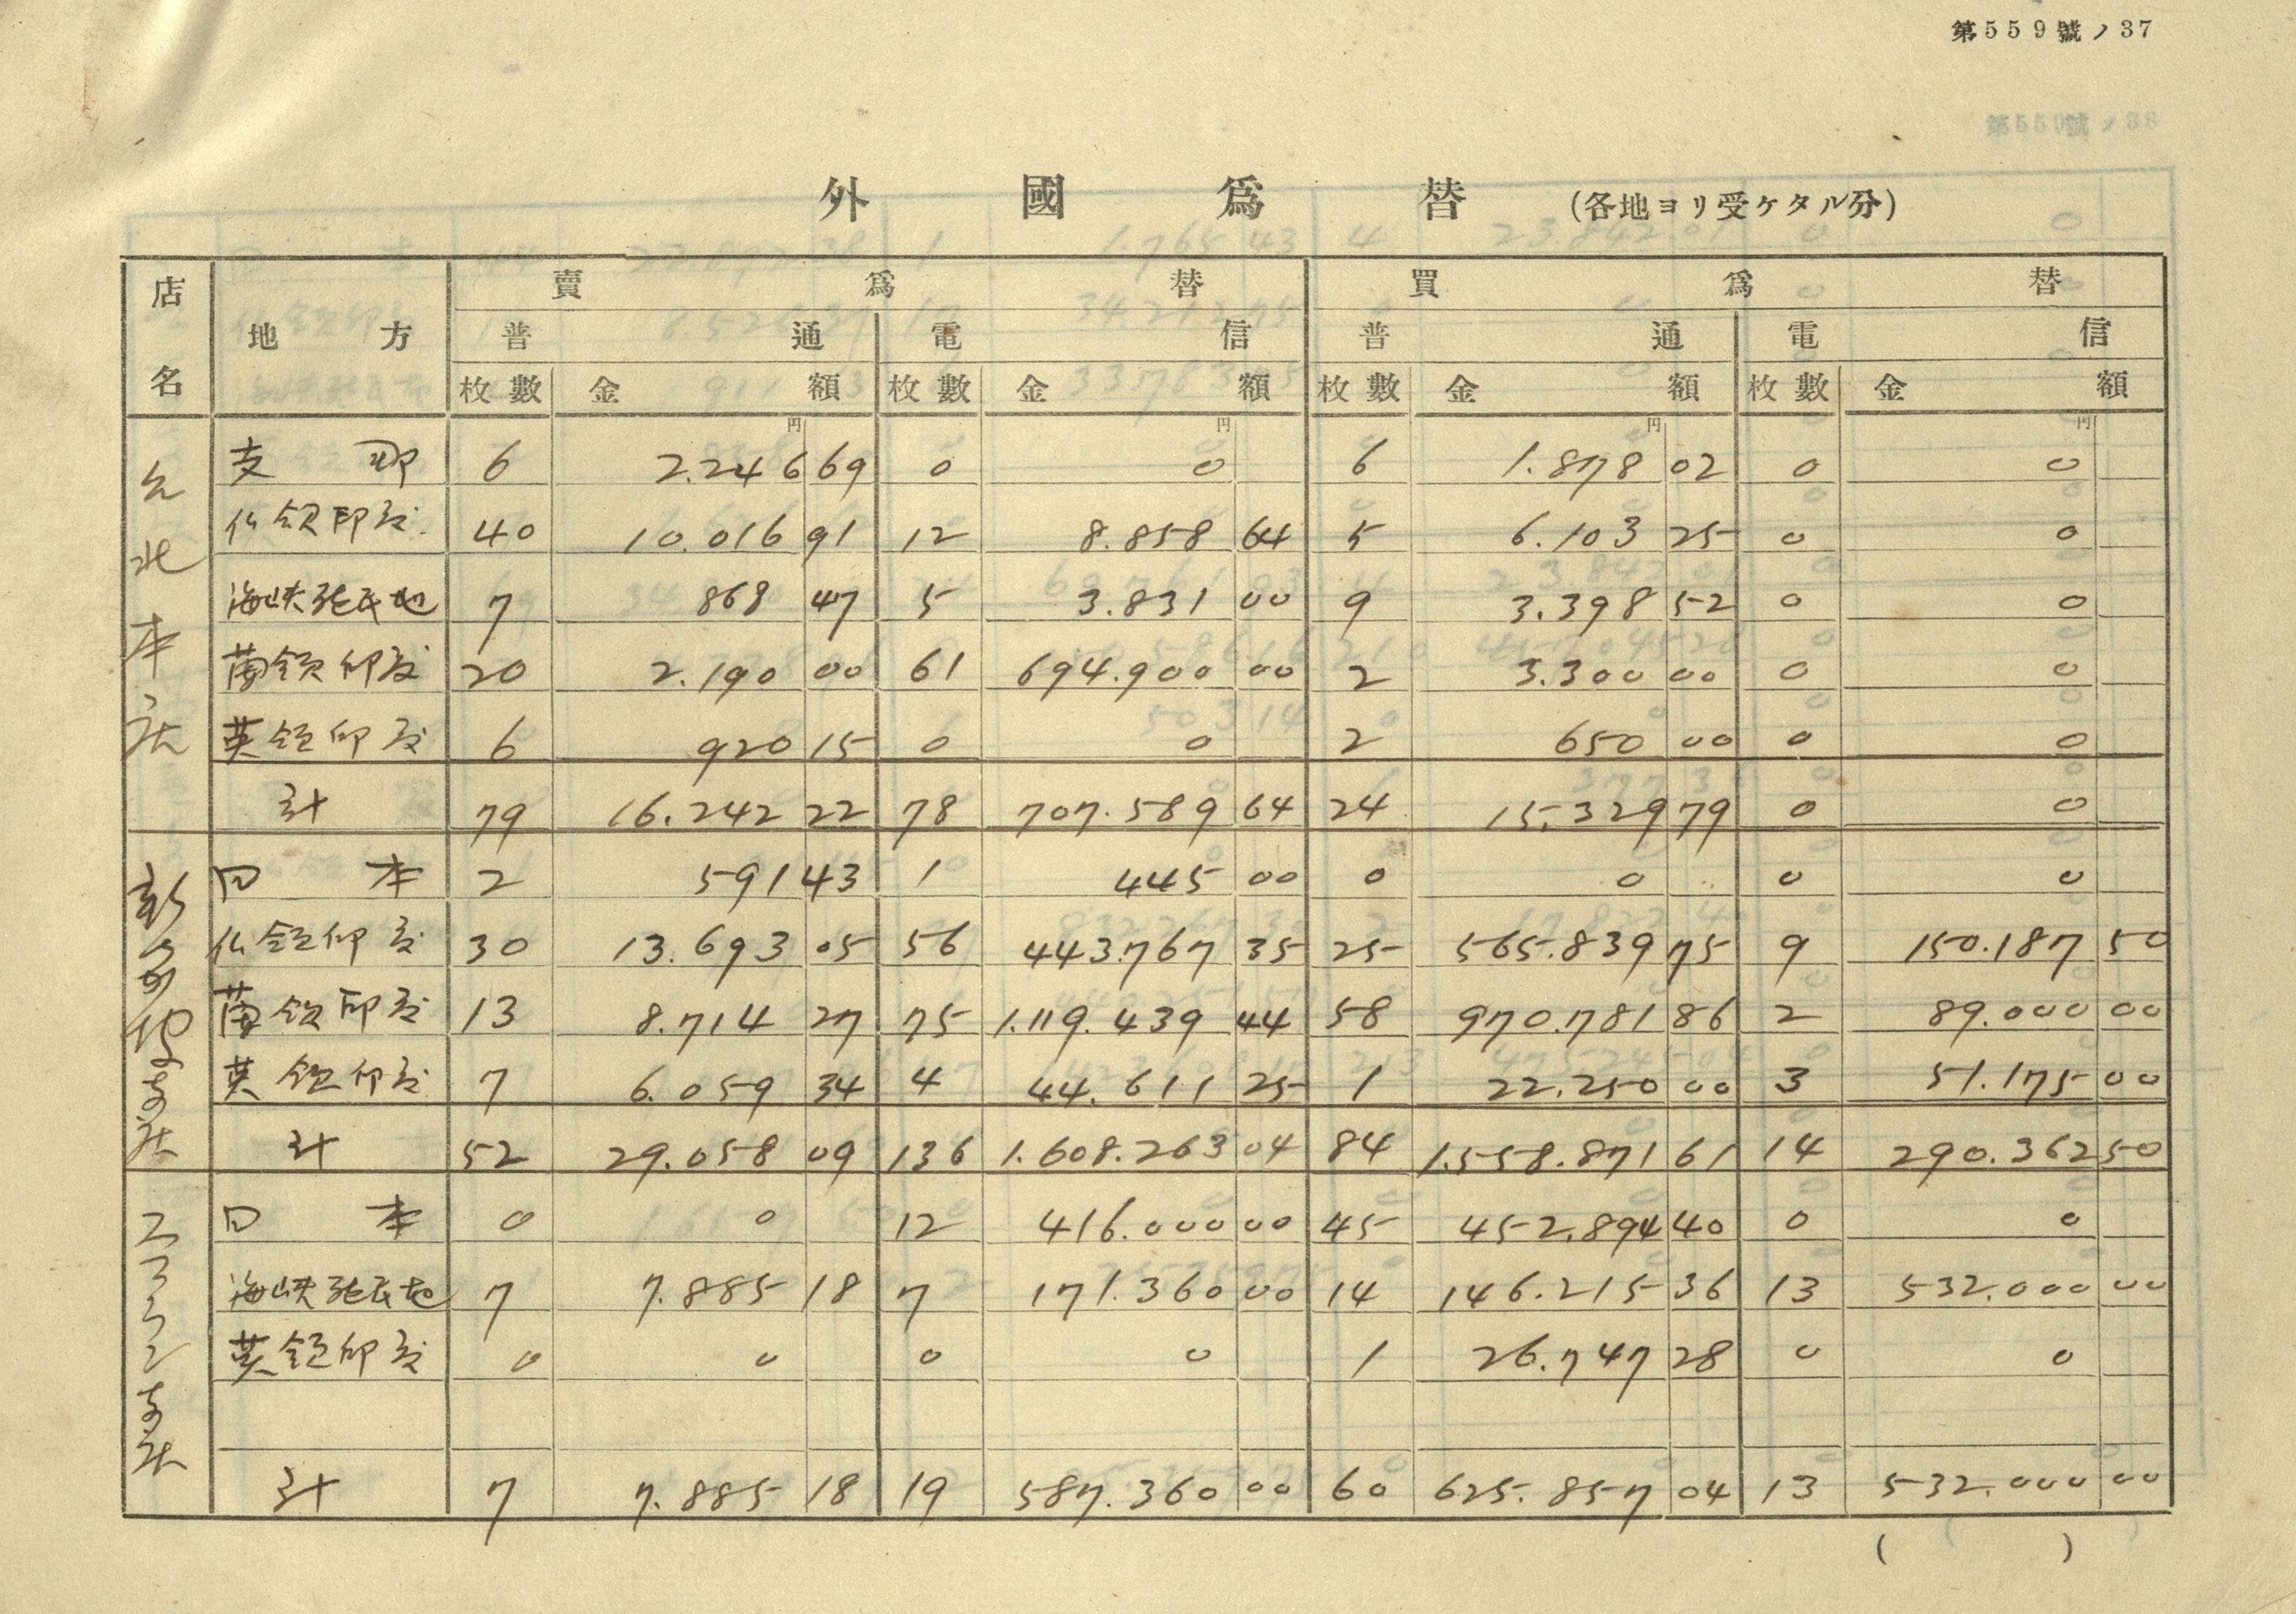 第559號ノ37
外國爲替 (各地ヨリ受ケタル分)
店名 地方 賣爲替 買爲替
普通 電信 普通 電信
枚數 金額 枚數 金額 枚數 金額 枚數 金額
円 円 円 円
台北本店
支那 6 2.246 69 0 0 6 1.878 02 0 0
仏領印度 40 10.016 91 12 8.858 64 5 6.103 25 0 0
海峡殖民地 7 868 47 5 3.831 00 9 3.398 52 0 0
蘭領印度 20 2.190 00 61 694.900 00 2 3.300 00 0 0
英領印度 6 920 15 0 0 2 650 00 0 0
計 79 16.242 22 78 707.589 64 24 15.329 79 0 0
新嘉坡支店
日本 2 591 43 1 445 00 0 0 0 0
仏領印度 30 13.693 05 56 443.767 35 25 565.839 75 9 150.187 50
蘭領印度 13 8.714 27 75 1.119.439 44 58 970.781 86 2 89.000 00
英領印度 7 6.059 34 4 44.611 25 1 22.250 00 3 51.175 00
計 52 29.058 09 136 1.608.263 04 84 1.558.871 61 14 290.362 50
支店
日本 0 0 12 416.000 00 45 452.894 40 0 0
海峡殖民地 7 7.885 18 7 171.360 00 14 146.215 36 13 532.000 00
英領印度 0 0 0 0 1 26.747 28 0 0
計 7 7.885 18 19 587.360 00 60 625.857 04 13 532.000 00
( )